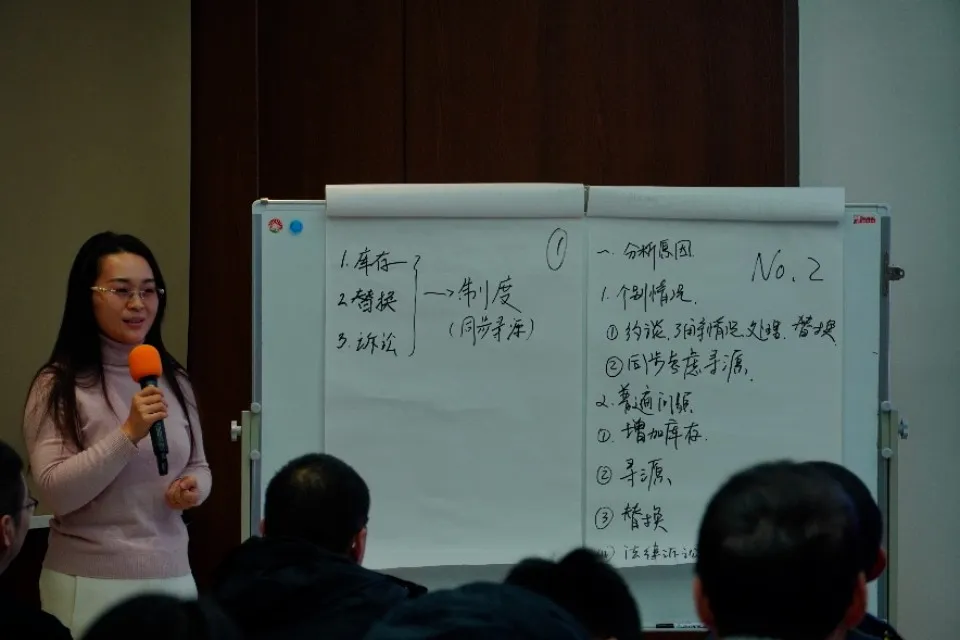 ①
1. 库存
2. 替换
3. 诉讼
→制度
(同步寻源)
No. 2
一. 分析原因
1. 个别情况.
① 约谈, 了解情况, 处理, 替换
② 同步考虑寻源.
2. 普遍问题
①. 增加库存.
② 寻源
③ 替换
诉讼